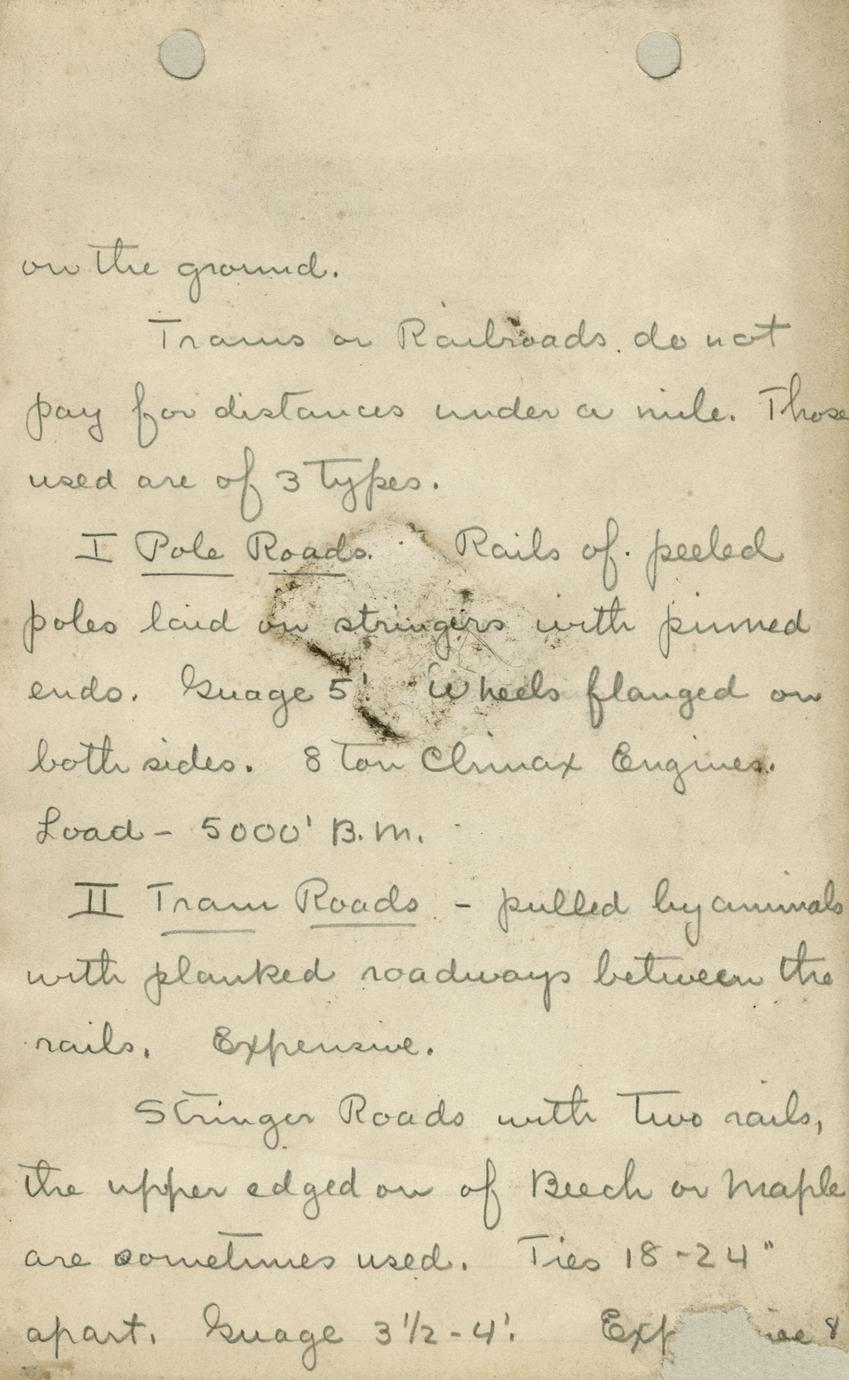 on the ground.
Trams or Railroads do not
pay for distances under a mile. Those
used are of 3 types.
I Pole Roads. Rails of peeled
poles laid on stringers with pinned
ends. Guage 5'. Wheels flanged on
both sides. 8 ton Climax Engines.
Load - 5000' B.M.
II Tram Roads - pulled by animals
with planked roadways between the
rails. Expensive.
Stringer Roads with two rails,
the upper edged on of Beech or Maple
are sometimes used. Ties 18-24"
apart. Guage 3 1/2 - 4'. 8